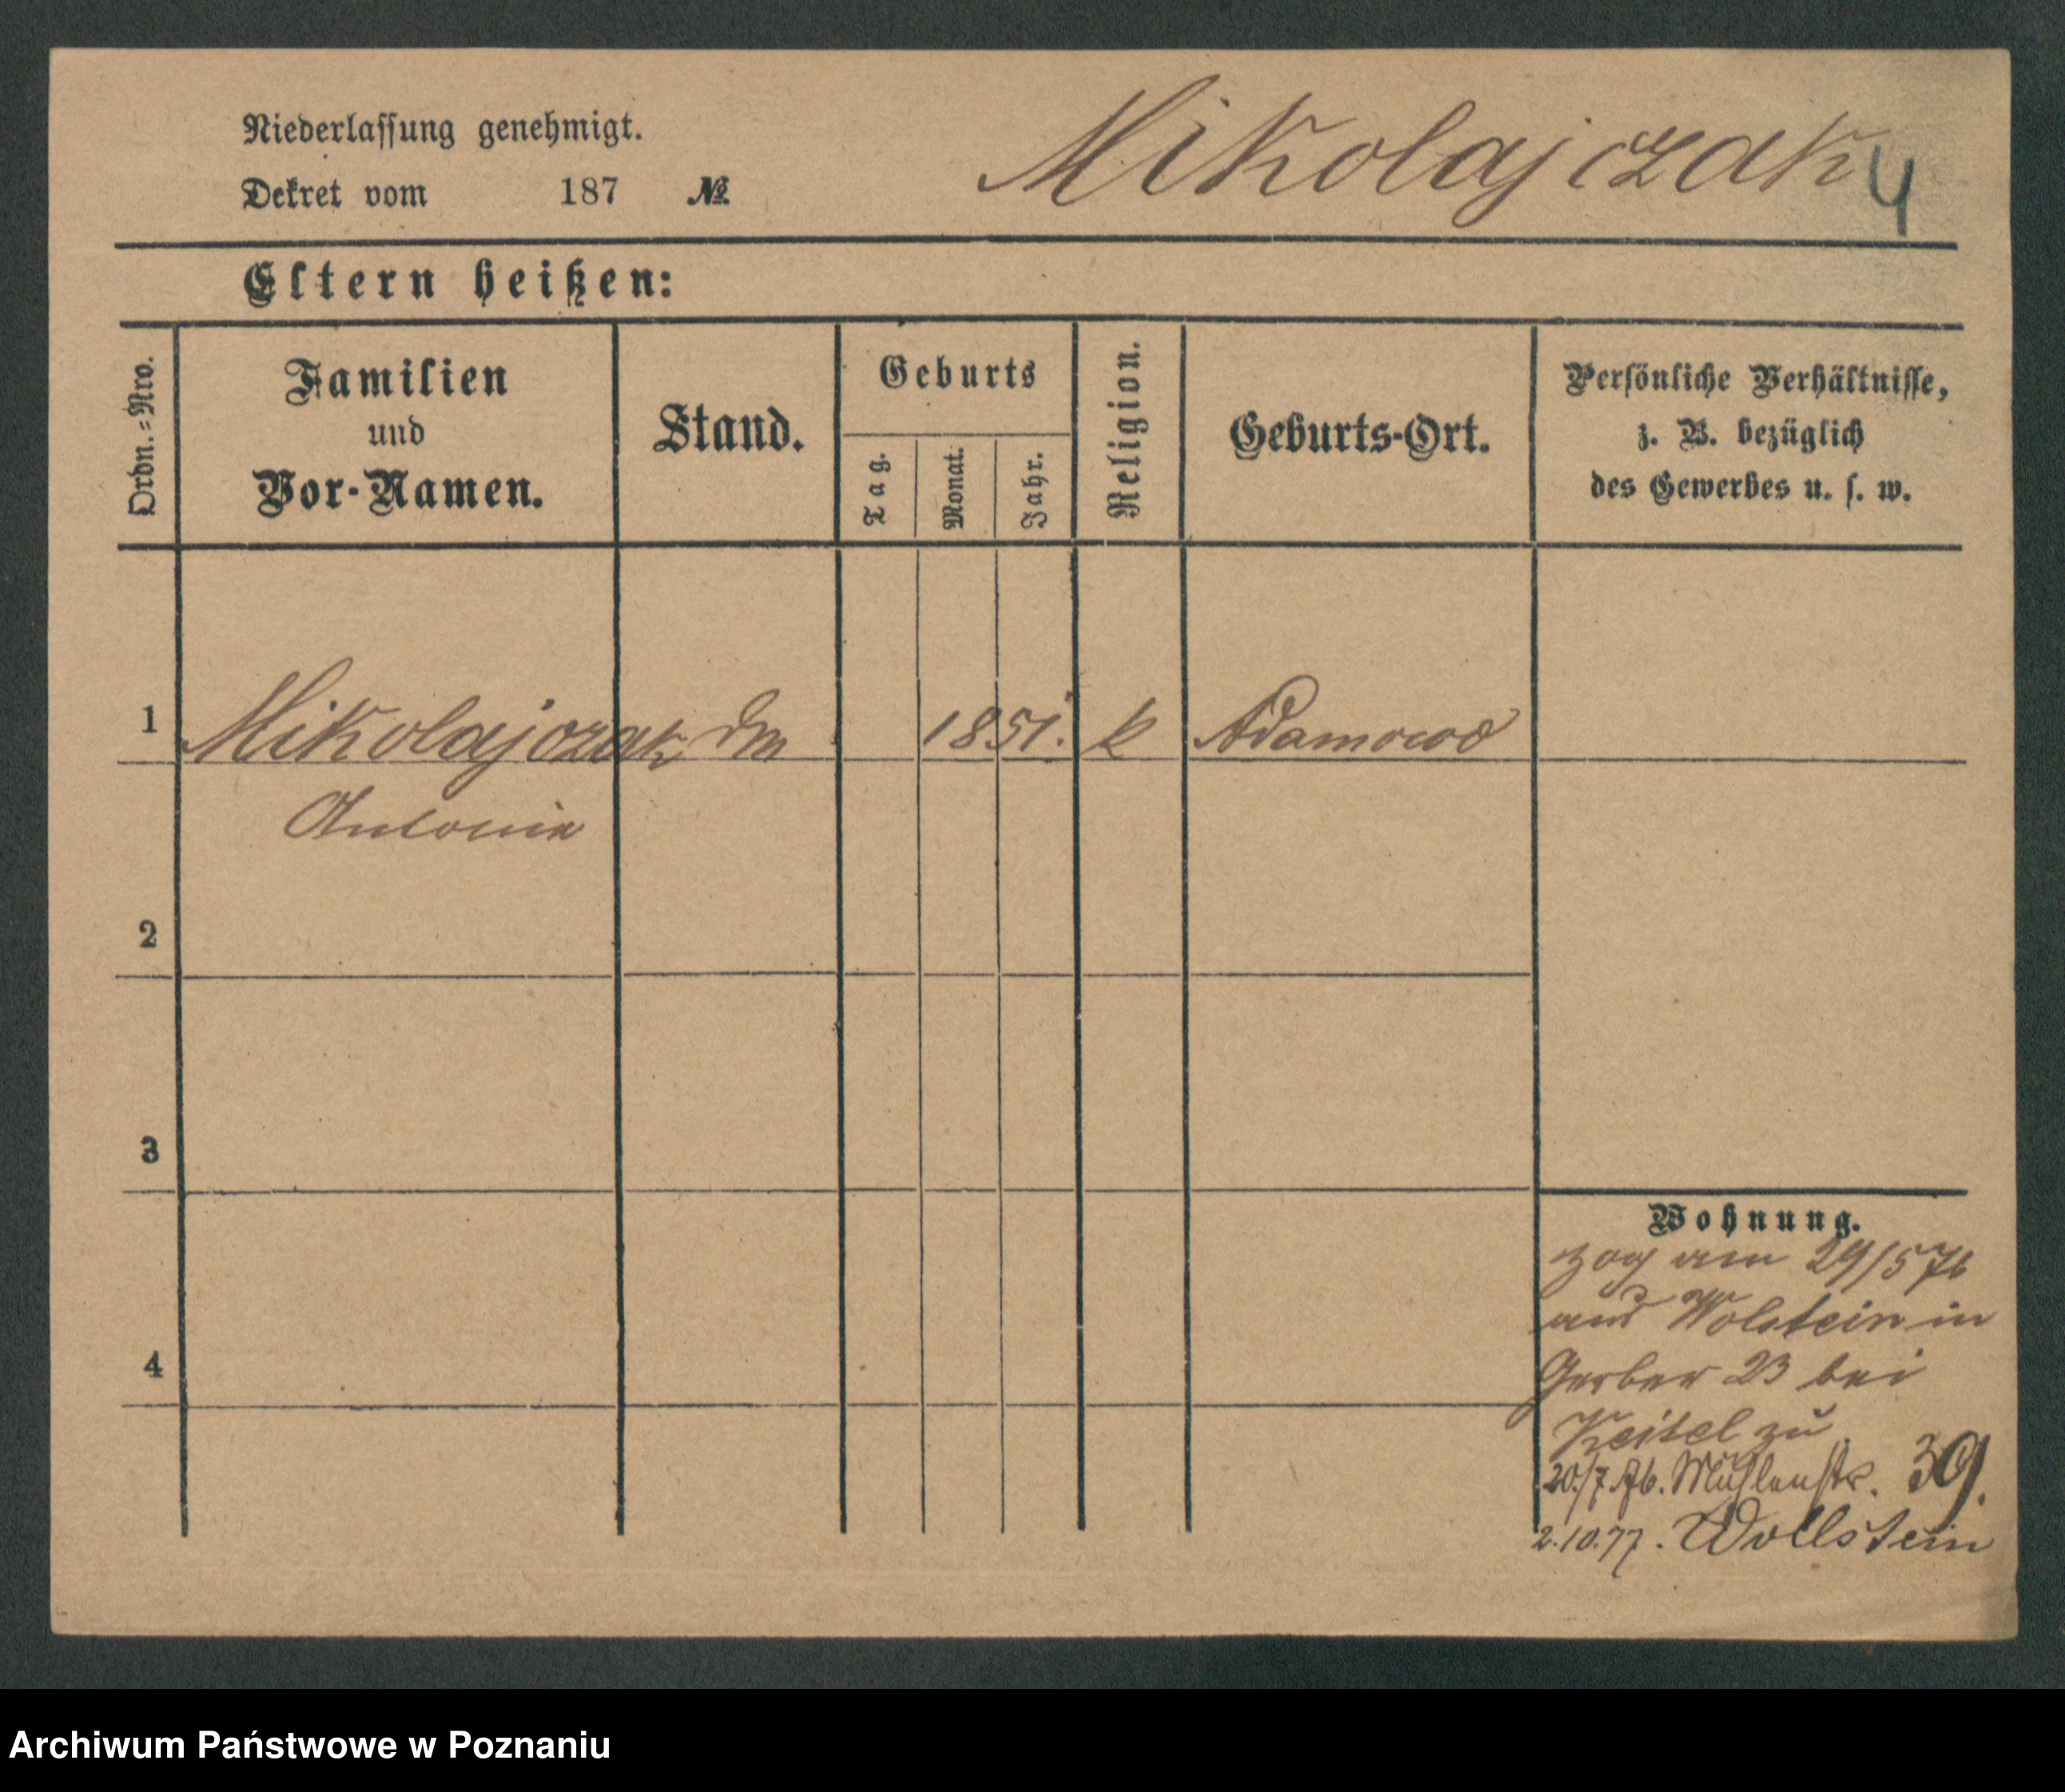 Niederlassung genehmigt.
Dekret vom 187 № Mikolajczak 4
Eltern heißen:
Ordn.=Nro.
Familien
und
Vor-Namen.
Stand.
Geburts
Tag.
Monat.
Jahr.
Religion.
Geburts-Ort.
Persönliche Verhältnisse,
z. B. bezüglich
des Gewerbes u. s. w.
1 Mikolajczak 1851. k Adamowo
Antonia
2
3
4
Wohnung.
zog am 29/5 76
aus Wolstein in
Gerber 23 bei
Keitel zu
20/7 76. Mühlenstr. 39.
2.10.77. Wollstein
Archiwum Państwowe w Poznaniu